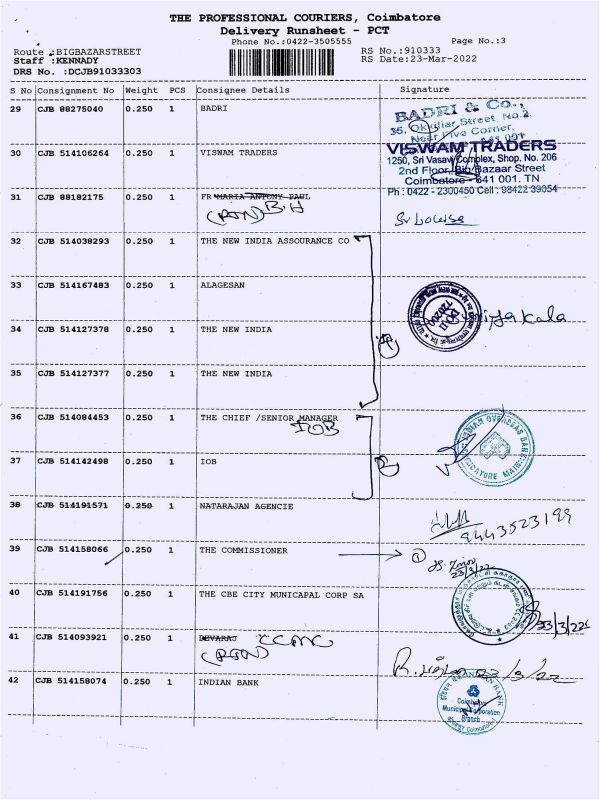 THE PROFESSIONAL COURIERS, Coimbatore
Delivery Runsheet - PCT
Phone No.:0422-3505555
Page No.:3
Route :BIGBAZARSTREET
RS No.:910333
Staff :KENNADY
RS Date:23-Mar-2022
DRS No. :DCJB91033303
S No Consignment No Weight PCS Consignee Details Signature
29 CJB 88275040 0.250 1 BADRI
BADRI & Co.,
Near Five Corner,
30 CJB 514106264 0.250 1 VISWAM TRADERS
VISWAM TRADERS
1250, Sri Vasavi Complex, Shop. No. 206
2nd Floor, Big Bazaar Street
Coimbatore - 641 001. TN
Ph : 0422 - 2300450 Cell : 98422 39054
31 CJB 88182175 0.250 1 FR MARIA ANTONY PAUL
(RTN) B.H
32 CJB 514038293 0.250 1 THE NEW INDIA ASSOURANCE CO
33 CJB 514167483 0.250 1 ALAGESAN
34 CJB 514127378 0.250 1 THE NEW INDIA
35 CJB 514127377 0.250 1 THE NEW INDIA
36 CJB 514084453 0.250 1 THE CHIEF /SENIOR MANAGER
IOB
INDIAN OVERSEAS BANK
37 CJB 514142498 0.250 1 IOB
38 CJB 514191571 0.250 NATARAJAN AGENCIE
9443523199
39 CJB 514158066 0.250 1 THE COMMISSIONER
1
23/3/22
40 CJB 514191756 0.250 1 THE CBE CITY MUNICAPAL CORP SA
23/3/22
41 CJB 514093921 0.250 1 DEVARAJ CCMC
(RTN)
23/3/22
42 CJB 514158074 0.250 1 INDIAN BANK
INDIAN BANK
Coimbatore
Municipal Corporation
Branch